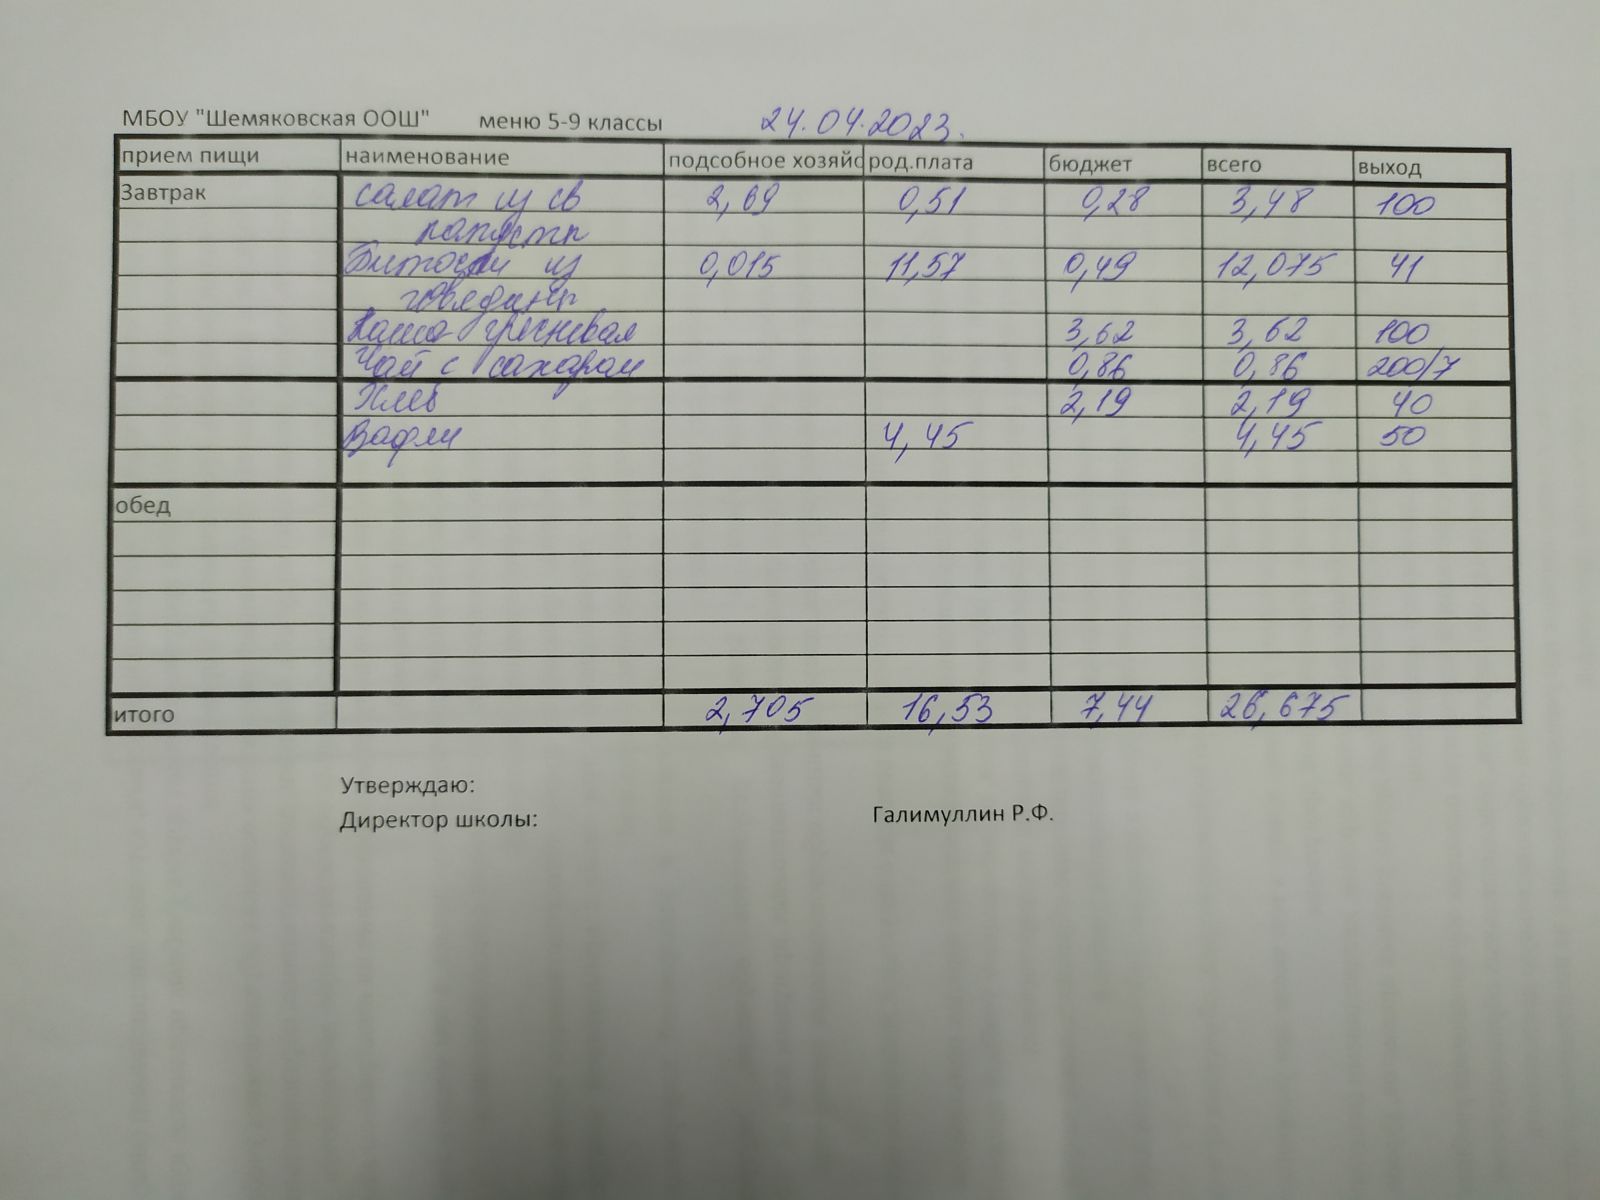 МБОУ "Шемяковская ООШ" меню 5-9 классы 24.04.2023.
прием пищи наименование подсобное хозяйс род.плата бюджет всего выход
Завтрак салат из св 2,69 0,51 0,28 3,48 100
капусты
Биточки из 0,015 11,57 0,49 12,075 41
говядины
Каша гречневая 3,62 3,62 100
Чай с сахаром 0,86 0,86 200/7
Хлеб 2,19 2,19 40
Вафли 4,45 4,45 50
обед
итого 2,705 16,53 7,44 26,675
Утверждаю:
Директор школы: Галимуллин Р.Ф.